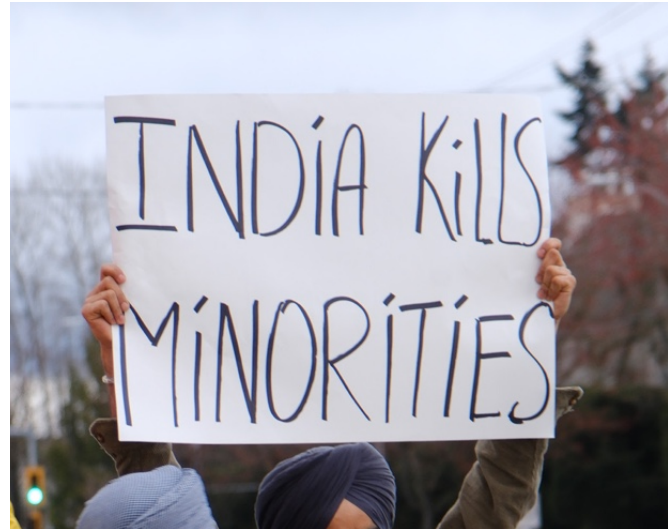 INDiA KiLLS
MiNORiTiES